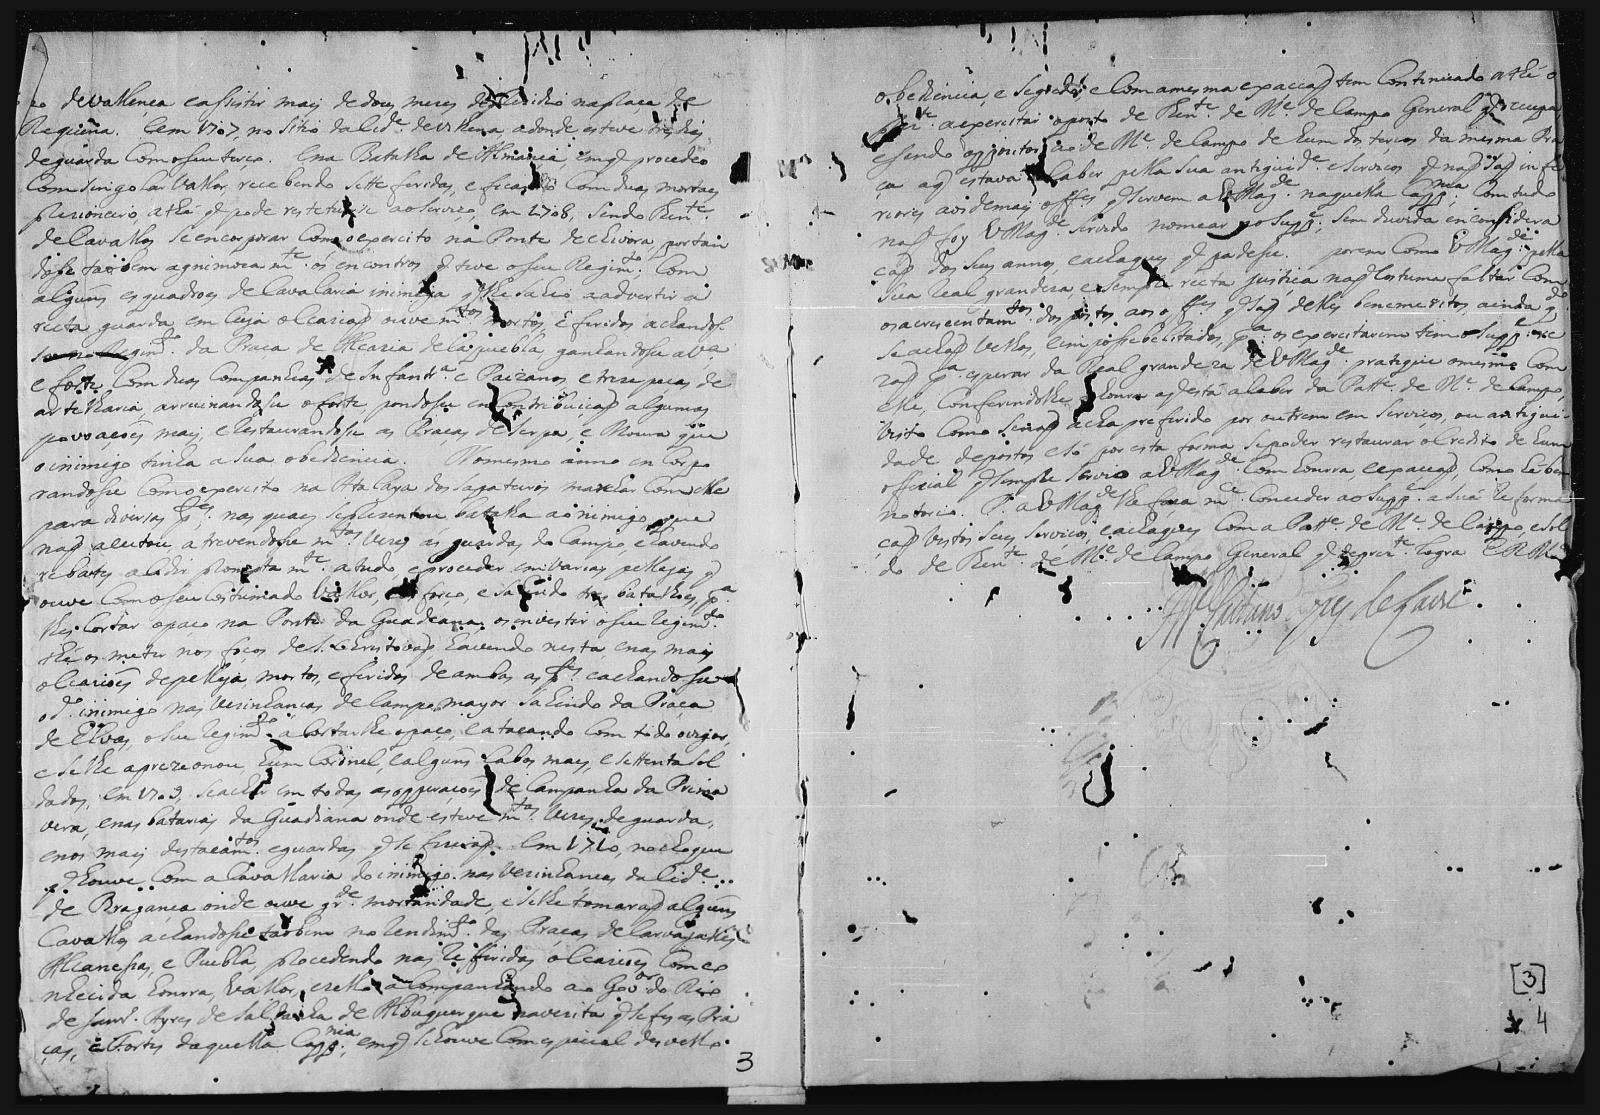 de Vallença e assistir mais de dous mezes de presidio na praça de
Requena. Em 1707, no sitio da Cid.e de Vilhena, adonde esteve tres dias
de guarda com o seu terço. Ena Batalha de Almança, em q̃ procedeo
com singolar Vallor, recebendo sette feridas, e ficando com duas mortaes
prisioneiro, athé q̃ pode restetuirse ao serviço, em 1708, sendo Then.te
de Cavallos se encorporar com o exercito na Ponte de Elvora, portan
dose taobem agnimoza m.te os encontros q̃ teve o seu Regim.to com
alguns esquadroes de Cavalaria inimiga q̃ lhe sahio a advertir a
recta guarda, em cuja occaziaõ ouve m.tos mortos, e feridos achandose
da Praça de Alcaria de la puebla, ganhandose a V.a
e forte com duas Companhias de Infantr.a e Paizanos e treze peças de
artilharia, arruinandose o forte pondose em contribuiçaõ algumas
povoações mais, e restaurandose as Praças de Serpa, e Moura que
o inimigo tinha a sua obediencia. No mesmo anno encorpo
randose com o exercito na Atalaya dos Sapateiros marchar com elle
para diversas p.tes nas quaes se prezentou batalha ao inimigo, que
naõ aceitou, atrevendose m.tas Vezes as guardas do Campo, e havendo
rebates acodir promta m.te a tudo e proceder em varias pellejas q̃
ouve com o seu costumado Vallor, esforço, e sahindo tres batalhoes, p.a
lhes cortar o paço na Ponte da Guadeana, os investir o seu Regim.to
thé os meter nos foços de S. Christovaõ, havendo nesta, e nas mais
occazioẽs de pelleja, mortos, e feridos de ambas as p.tes e achandose
o d.o inimigo nas Vezinhanças de Campo mayor sahindo da Praça
de Elvas, o seu Regim.to a cortarlhe o paço, e atacando com todo o vigor,
e se lhe aprezionou hum Coronel, e alguns Cabos mais, e settenta sol
dados, em 1709, se achar em todas as opperaçoẽs de Campanha da Prima
vera, e nas batarias da Guadiana onde esteve m.tas Vezes de guarda,
e nos mais destacam.tos e guardas q̃ se fizeraõ. Em 1710, no choque
q̃ houve com a Cavallaria do inimigo nas Vezinhanças da Cid.e
de Bragança onde ouve gr.de mortandade, e se lhe tomaraõ alguns
Cavallos achandose taobem no rendim.to das Praças de Carvajales
Alcanessas, e Puebla, procedendo nas refferidas occazioẽs com co
nhecida honrra, Vallor, e zello acompanhando ao Gov.or do Rio
de Janr.o Ayres de Saldanha de Albuquerque na vezita q̃ se fes as Pra
ças, e Fortes daquella Capp.nia, em q̃ se houve com especial desvello.
3
obediencia, e segredo, e com a mesma expacçaõ tem continuado athé o
prez.te a exercitar o posto de Then.te de M.e de Campo General q̃ occupa,
e sendo oppozitor ao de M.e de Campo de hum dos terços da mesma Pra
ça a q̃ estava a caber pella sua antiguid.e e serviços q̃ naõ saõ infe
riores aos demais off.es q̃ servem a V Mag.de naquella Capp.nia, comtudo
naõ foy V Mag.de servido nomear ao Supp.e, sem duvida em considera
çaõ dos seus annos, e achaques q̃ padese. porem como V Mag.de pella
Sua Real grandeza, e sempre recta justiça naõ costuma faltar com
os acrescentam.tos dos postos aos off.es q̃ saõ delles benemeritos, ainda q.do
se achaõ Velhos, e impossebelitados, p.a os exercitarem tem o Supp.e rre
zaõ p.a esperar da Real grandeza de V Mag.de pratique o mesmo com
elle, conferindolhe a honra q̃ está a caber da Patt.e de M.e de Campo,
visto como se naõ acha preferido por outrem em serviços, ou antigui-
dade de postos e só por esta forma se poder restaurar o Credito de hum
official q̃ sempre servio a V Mag.de com honrra, e expacçaõ, como he bem
notorio. P. a V Mag.de lhe faça m.ce conceder ao Supp.e a sua reforma
çaõ vistos seus serviços, e achaques com a Patt.e de M.e de Campo, e sol
do de Then.te de M.e de Campo General q̃ de prez.te logra E R M.ce
[3]
4